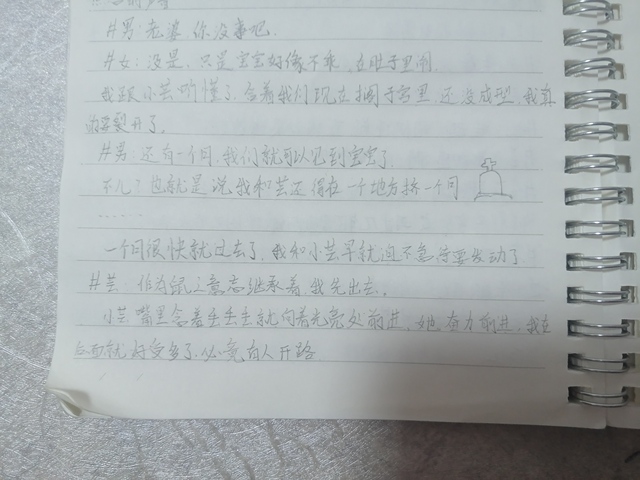 #男:老婆,你没事吧。
#女:没是,只是宝宝好像不乖,在肚子里闹
我跟小芸听懂了,合着我们现在搁子宫里,还没成型,我真
的要裂开了。
#男:还有一个月,我们就可以见到宝宝了
不儿?也就是说我和芸还得在一个地方挤一个月
......
一个月很快就过去了,我和小芸早就迫不急待要发动了
#芸:作为鼠鼠意志继承着,我先出去。
小芸嘴里念着生生生就向着光亮处前进,她奋力前进,我在
后面就好受多了,必竟有人开路